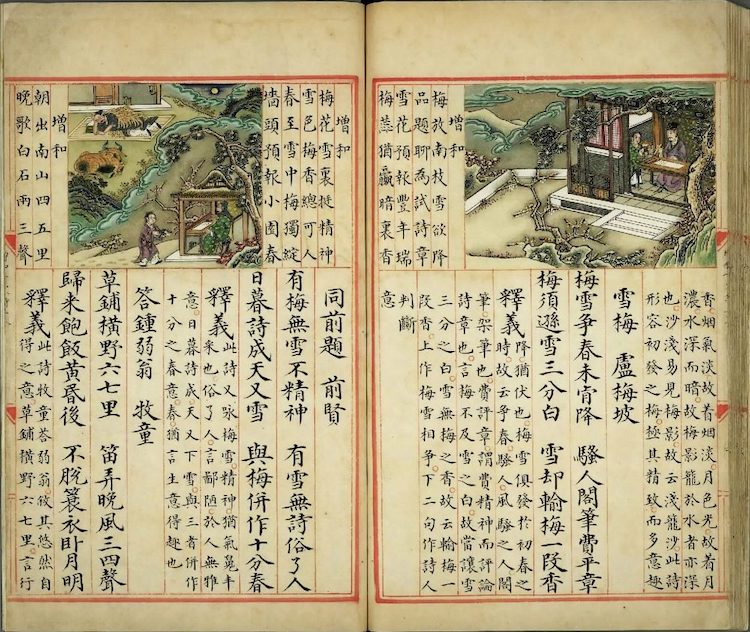 增和
梅於南枝雪欲降
品題聊為試詩章
雪花預報豐年瑞
梅蕊猶贏暗裏香
香烟氣淡故着烟淡月色光故着月
濃水深而暗故梅影籠於水者亦深
也沙淺易見梅影故云淺籠沙此詩
形容初發之梅極其精致而多意趣
雪梅 盧梅坡
梅雪争春未肯降 騷人閣筆費平章
梅須遜雪三分白 雪却輸梅一段香
釋義 降猶伏也梅雪俱發於初春之
時故云争春騷人風騷之人閣
筆架筆也費評章謂費精神而評論
詩章也言梅不及雪之白故當讓雪
三分之白雪無梅之香故云輸梅一
段香上作梅雪相争下二句作詩人
判斷
意
增和
梅花雪裏挺精神
雪色梅香總可人
春至雪中梅獨綻
墻頭預報小園春
增和
朝出南山四五里
晚歌白石兩三聲
同前題 前賢
有梅無雪不精神 有雪無詩俗了人
日暮詩成天又雪 與梅併作十分春
釋義 此詩又咏梅雪精神猶氣㮣丰
采也俗了人言鄙陋於人無雅
意日暮詩成天又下雪與三者併作
十分之春意春猶言生意得趣也
答鍾弱翁 牧童
草鋪橫野六七里 笛弄晚風三四聲
歸来飽飯黄昏後 不脱蓑衣卧月明
釋義 此詩牧童荅弱翁攸其悠然自
得之意草鋪橫野六七里言行